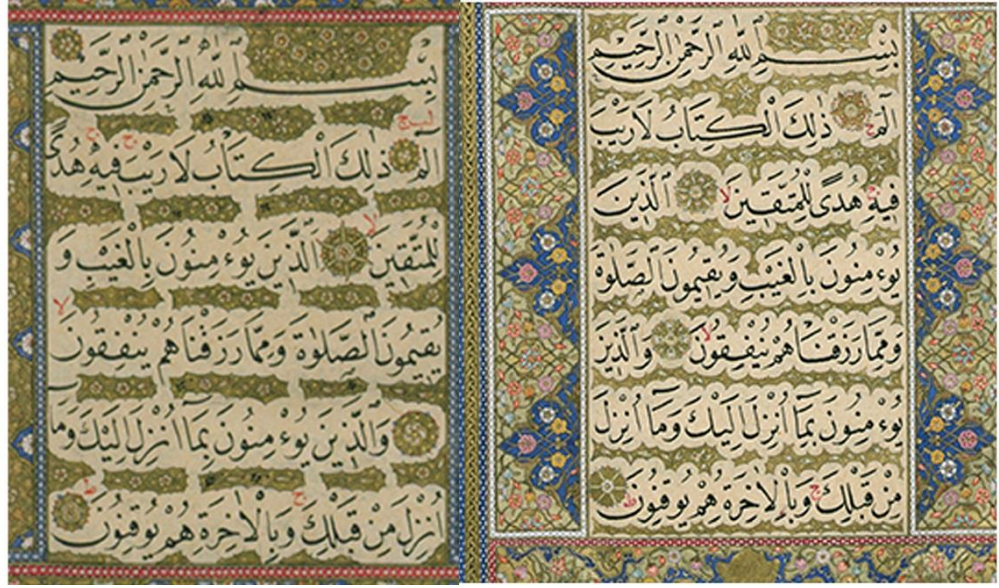 بِسْمِ اللّٰهِ الرَّحْمٰنِ الرَّحِيمِ
الٓمٓ ج ذٰلِكَ الْكِتَابُ لَا رَيْبَ
فِيهِ ج هُدًى لِلْمُتَّقِينَ لا اَلَّذِينَ
يُؤْمِنُونَ بِالْغَيْبِ وَيُقِيمُونَ الصَّلٰوةَ
وَمِمَّا رَزَقْنَاهُمْ يُنْفِقُونَ لا وَالَّذِينَ
يُؤْمِنُونَ بِمَٓا اُنْزِلَ اِلَيْكَ وَمَٓا اُنْزِلَ
مِنْ قَبْلِكَ ج وَبِالْاٰخِرَةِ هُمْ يُوقِنُونَ ط
بِسْمِ اللّٰهِ الرَّحْمٰنِ الرَّحِيمِ
الٓمٓ ج ذٰلِكَ الْكِتَابُ لَا رَيْبَ ج فِيهِ ج هُدًى
لِلْمُتَّقِينَ لا اَلَّذِينَ يُؤْمِنُونَ بِالْغَيْبِ وَ
يُقِيمُونَ الصَّلٰوةَ وَمِمَّا رَزَقْنَاهُمْ يُنْفِقُونَ لا
وَالَّذِينَ يُؤْمِنُونَ بِمَٓا اُنْزِلَ اِلَيْكَ وَمَٓا
اُنْزِلَ مِنْ قَبْلِكَ ج وَبِالْاٰخِرَةِ هُمْ يُوقِنُونَ ط